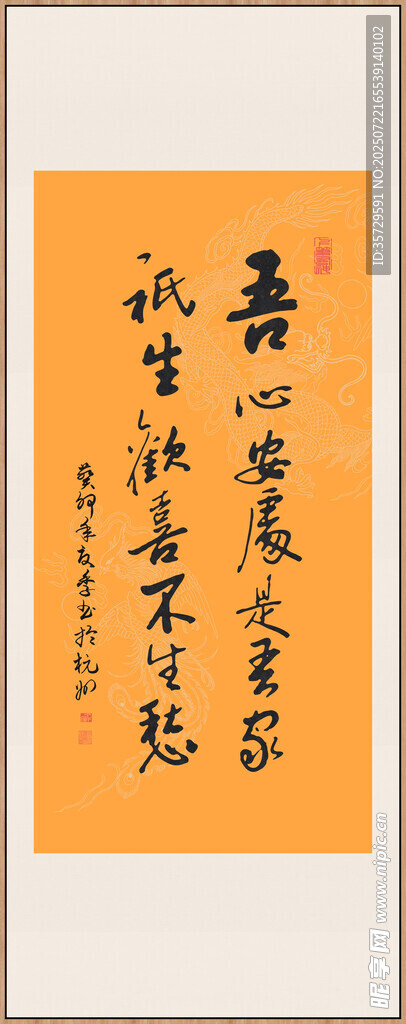 吾心安處是吾家
祇生歡喜不生愁
癸卯年夏季书於杭州
ID:35729591 NO:20250722165539140102
昵享网 www.nipic.cn